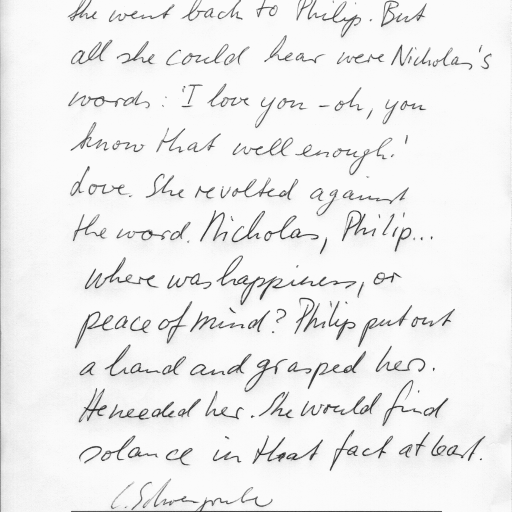 She went back to Philip. But
all she could hear were Nicholas's
words: 'I love you - oh, you
know that well enough!'
Love. She revolted against
the word. Nicholas, Philip...
where was happiness, or
peace of mind? Philip put out
a hand and grasped hers.
He needed her. She would find
solance in that fact at least.